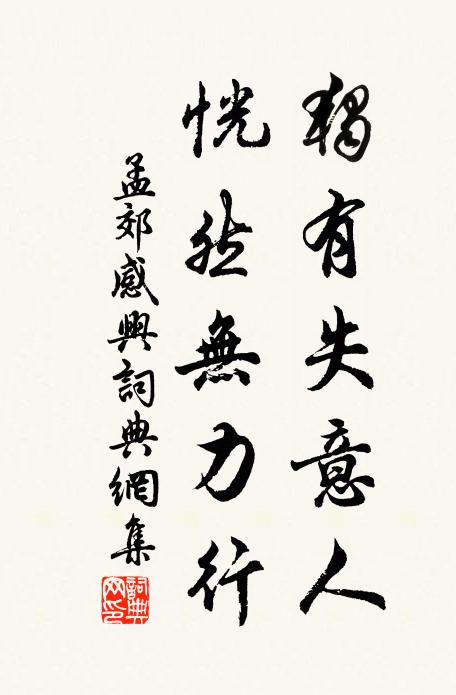 獨有失意人
恍然無力行
孟郊感興詞典網集
詞典網印